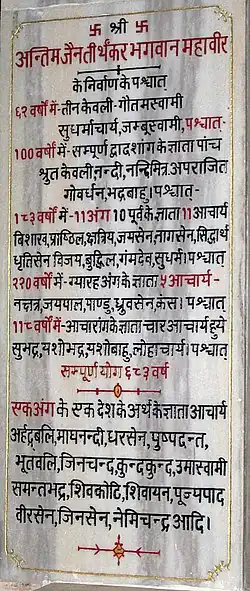 卐 श्री 卐
अन्तिम जैन तीर्थंकर भगवान महावीर
के निर्वाण के पश्चात्
६२ वर्षों में - तीन केवली - गोतम स्वामी
सुधर्माचार्य, जम्बूस्वामी, पश्चात्-
100 वर्षों में - सम्पूर्ण द्वादशांग के ज्ञाता पांच
श्रुत केवली, नन्दी, नन्दिमित्र, अपराजित
गोवर्धन, भद्रबाहु। पश्चात्-
1८3 वर्षों में - 11 अंग 10 पूर्व के ज्ञाता 11 आचार्य
विशाख, प्राष्ठिल, क्षत्रिय, जयसेन, नागसेन, सिद्धार्थ
धृतिसेन विजय, बुद्धिल, गंगदेव, सुधर्म। पश्चात्
२२0 वर्षों में - ग्यारह अंग के ज्ञाता ५ आचार्य -
नक्षत्र, जयपाल, पाण्डु, ध्रुवसेन, कंस। पश्चात्
11८ वर्षों में - आचारांग के ज्ञाता चार आचार्य हुये
सुभद्र, यशोभद्र, यशोबाहु, लोहाचार्य। पश्चात्
सम्पूर्ण योग ६८३ वर्ष
एक अंग के एक देश के अर्थ के ज्ञाता आचार्य
अर्हद्बलि, माघनन्दी, धरसेन, पुष्पदन्त,
भूतवलि, जिनचन्द, कुन्दकुन्द, उमास्वामी
समन्तभद्र, शिवकोटि, शिवायन, पूज्यपाद
वीरसेन, जिनसेन, नेमिचन्द्र आदि।